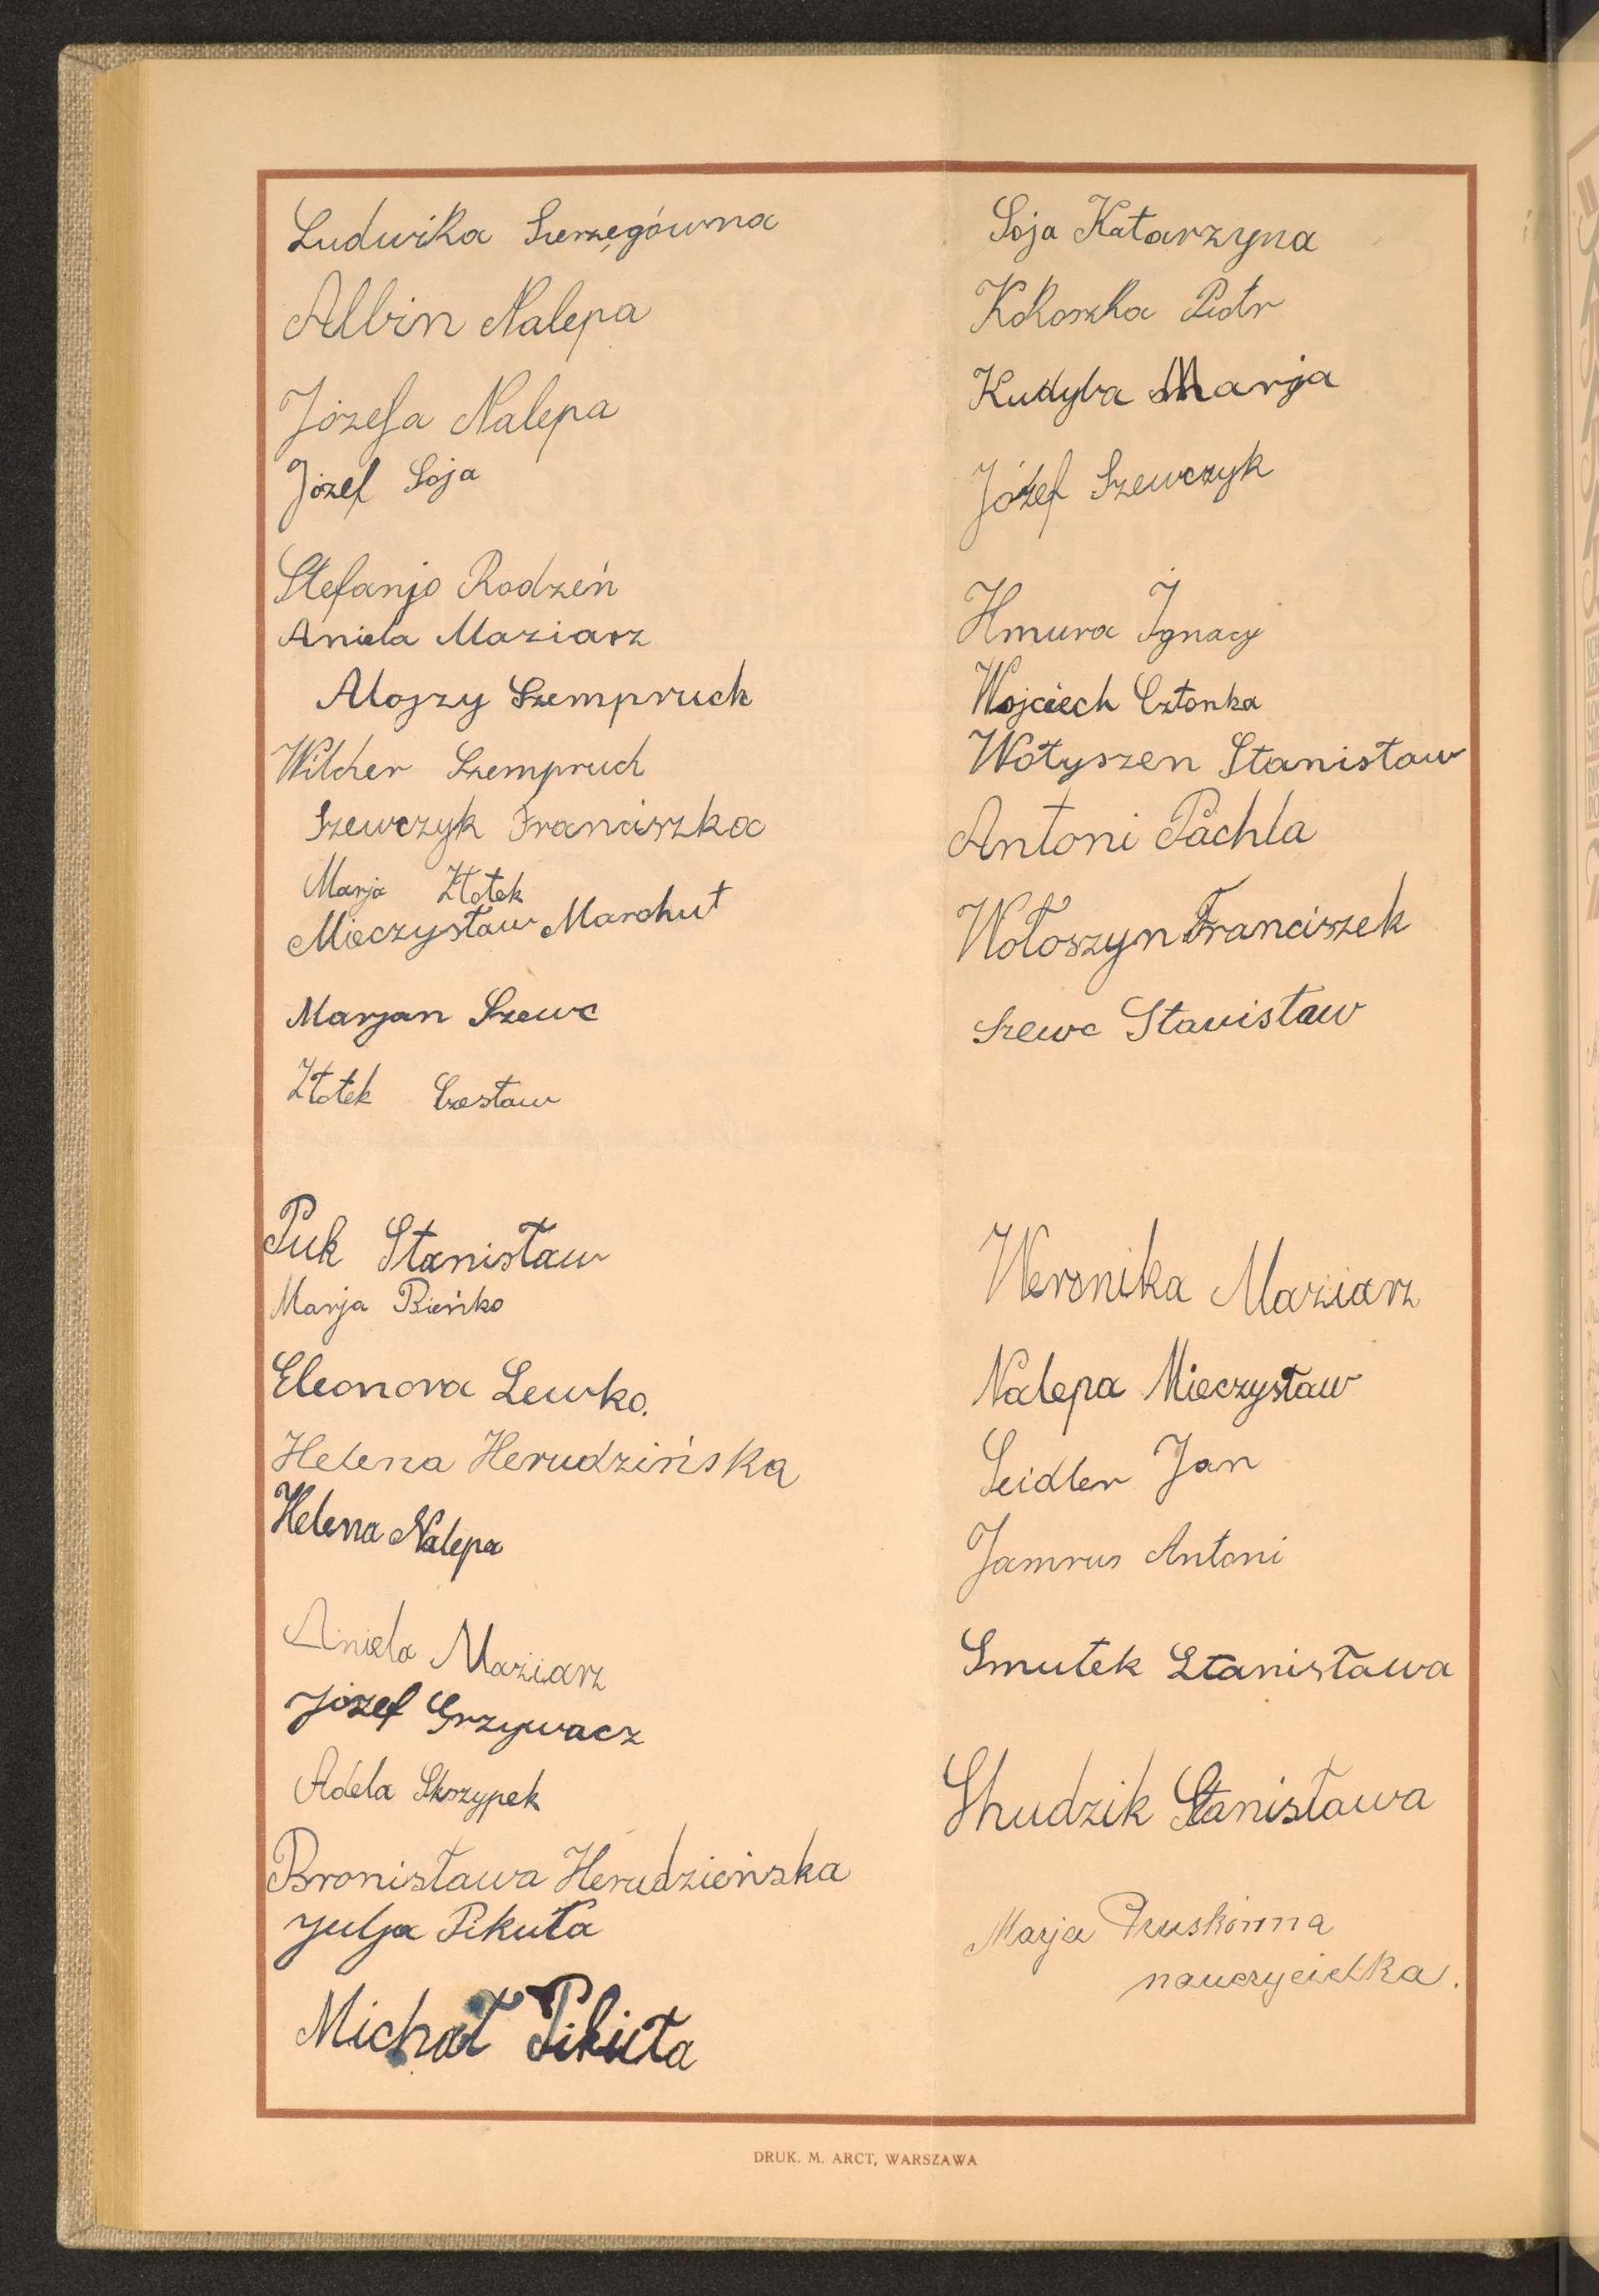 Ludwika Szerzęgówna
Albin Nalepa
Józefa Nalepa
Józef Soja
Stefanjo Rodzeń
Aniela Maziarz
Alojzy Szempruch
Wilcher Szempruch
Szewczyk Franciszka
Marja Złotek
Mieczysław Marchut
Marjan Szewc
Złotek Czesław
Puk Stanisław
Marja Bieńko
Eleonora Lewko.
Helena Herudzińska
Helena Nalepa
Aniela Maziarz
Józef Grzywacz
Adela Skrzypek
Bronisława Herudzieńska
Julja Pikuła
Michał Pikuła
Soja Katarzyna
Kokoszka Piotr
Kudyba Marja
Józef Szewczyk
Hmura Ignacy
Wojciech Członka
Wołyszen Stanisław
Antoni Pachla
Wołoszyn Franciszek
Szewc Stanisław
Weronika Maziarz
Nalepa Mieczysław
Seidler Jan
Jamrus Antoni
Smutek Stanisława
Stanisława
Marja
nauczycielka.
DRUK. M. ARCT, WARSZAWA